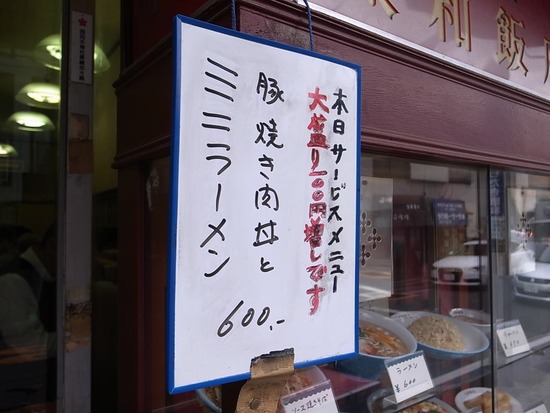 本日サービスメニュー
大盛り100円増しです
豚焼き肉丼と
ミニラーメン
600.-
和飯
ラーメン
¥600